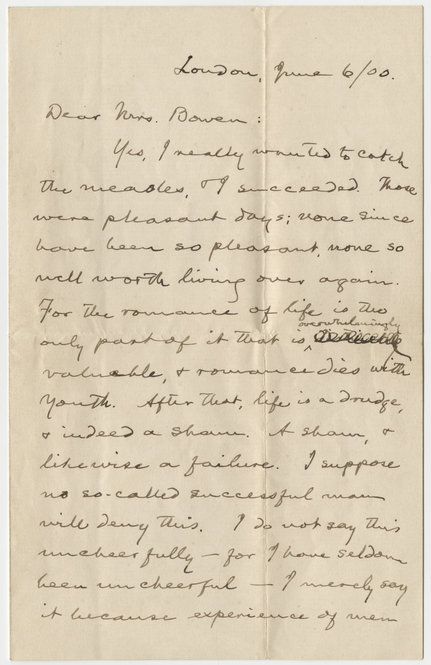 London, June 6/00.
Dear Mrs. Bowen:
Yes, I really wanted to catch
the measles, & I succeeded. Those
were pleasant days; none since
have been so pleasant, none so
well worth living over again.
For the romance of life is the
only part of it that is overwhelmingly
valuable, & romance dies with
youth. After that, life is a drudge,
& indeed a sham. A sham, &
likewise a failure. I suppose
no so-called successful man
will deny this. I do not say this
uncheerfully — for I have seldom
been uncheerful — I merely say
it because experience of men